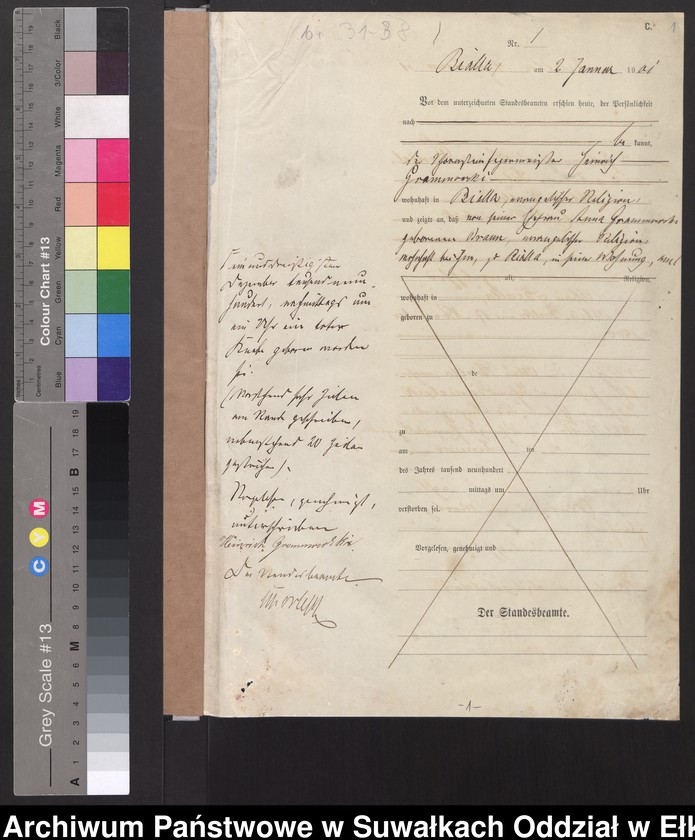 C. 1
Nr. 1
Bialla, am 2 Januar 1901
Vor dem unterzeichneten Standesbeamten erschien heute, der Persönlichkeit
nach
be kannt,
der Schornsteinfegermeister Heinrich
Grammowski
wohnhaft in Bialla, evangelischer Religion,
und zeigte an, daß von seiner Ehefrau Anna Grammowski
geborenen Braun, evangelischer Religion
wohnhaft bei ihm, zu Bialla, in seiner Wohnung, am
alt, Religion,
wohnhaft in
geboren zu
de
zu
am ten
des Jahres tausend neunhundert
mittags um Uhr
verstorben sei.
Vorgelesen, genehmigt und
Der Standesbeamte.
einunddreißigsten
Dezember tausend neun-
hundert, nachmittags um
ein Uhr ein todter
Knabe geboren worden
sei.
(Vorstehend sechs Zeilen
am Rande geschrieben,
nebenstehend 20 Zeilen
gestrichen).
Vorgelesen, genehmigt,
unterschrieben
Heinrich Grammowski.
Der Standesbeamte
-1-
Colour Chart #13
Blue Cyan Green Yellow Red Magenta White 3/Color Black
Inches Centimetres
Grey Scale #13
C Y M
A 1 2 3 4 5 6 M 8 9 10 11 12 13 14 15 B 17 18 19
Archiwum Państwowe w Suwałkach Oddział w Ełk